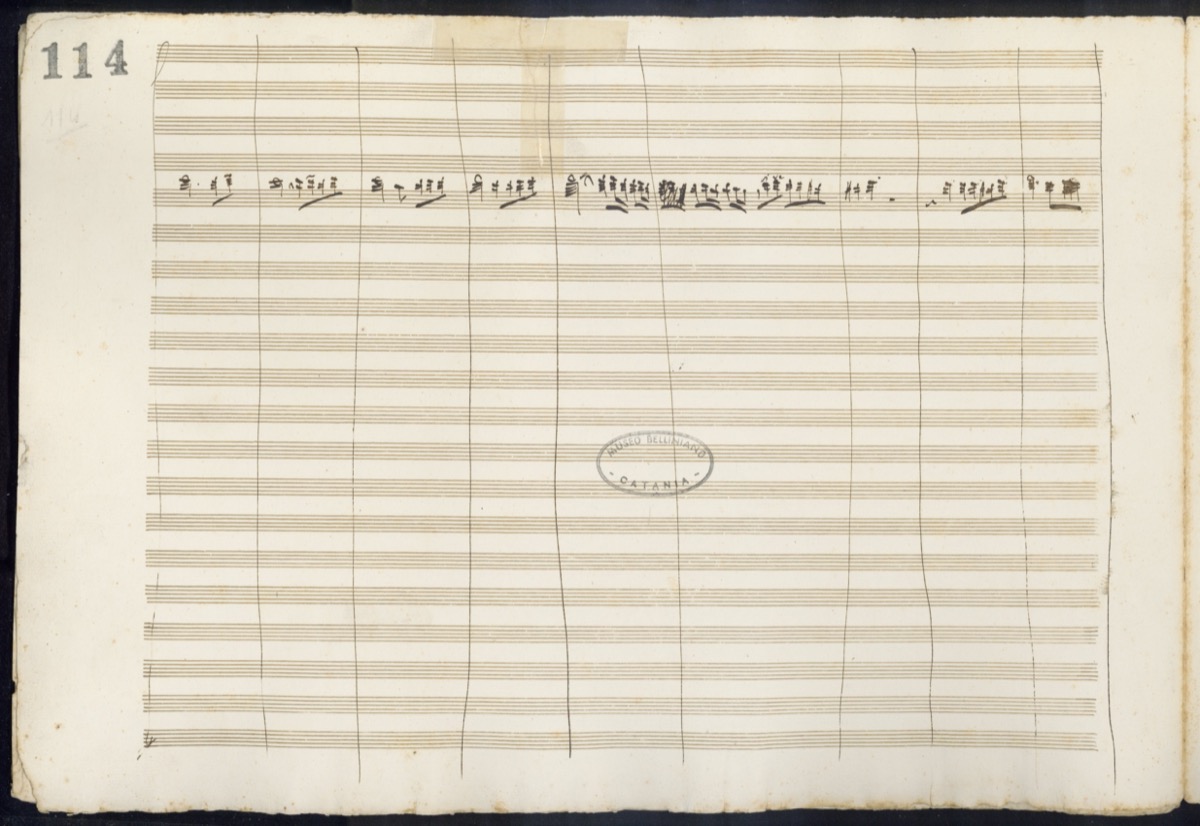 114
114
MUSEO BELLINIANO
- CATANIA -